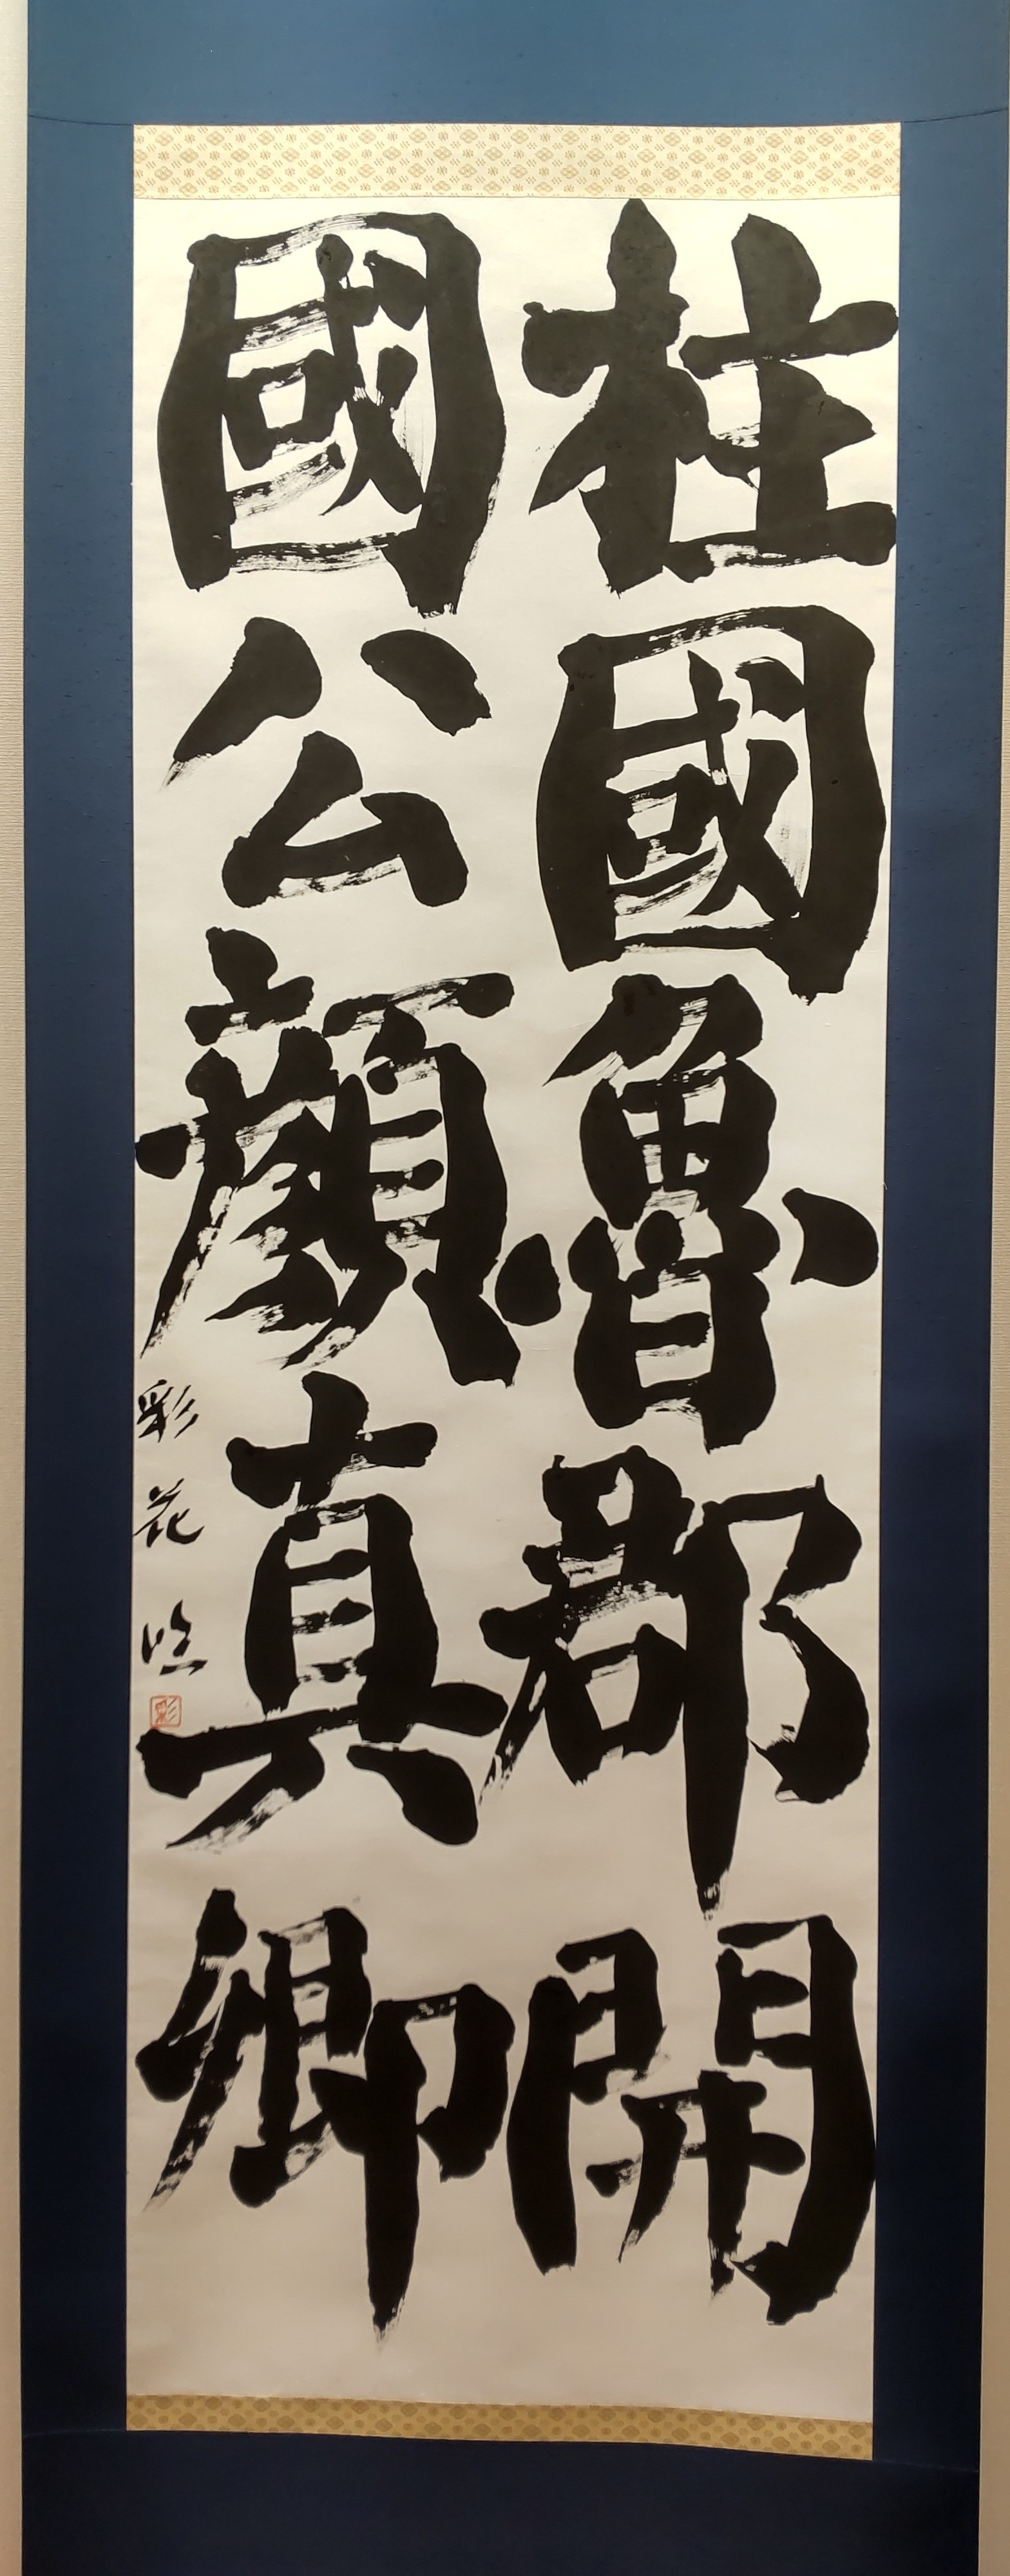 柱國魯郡開
國公顏真卿
彩花臨
彩